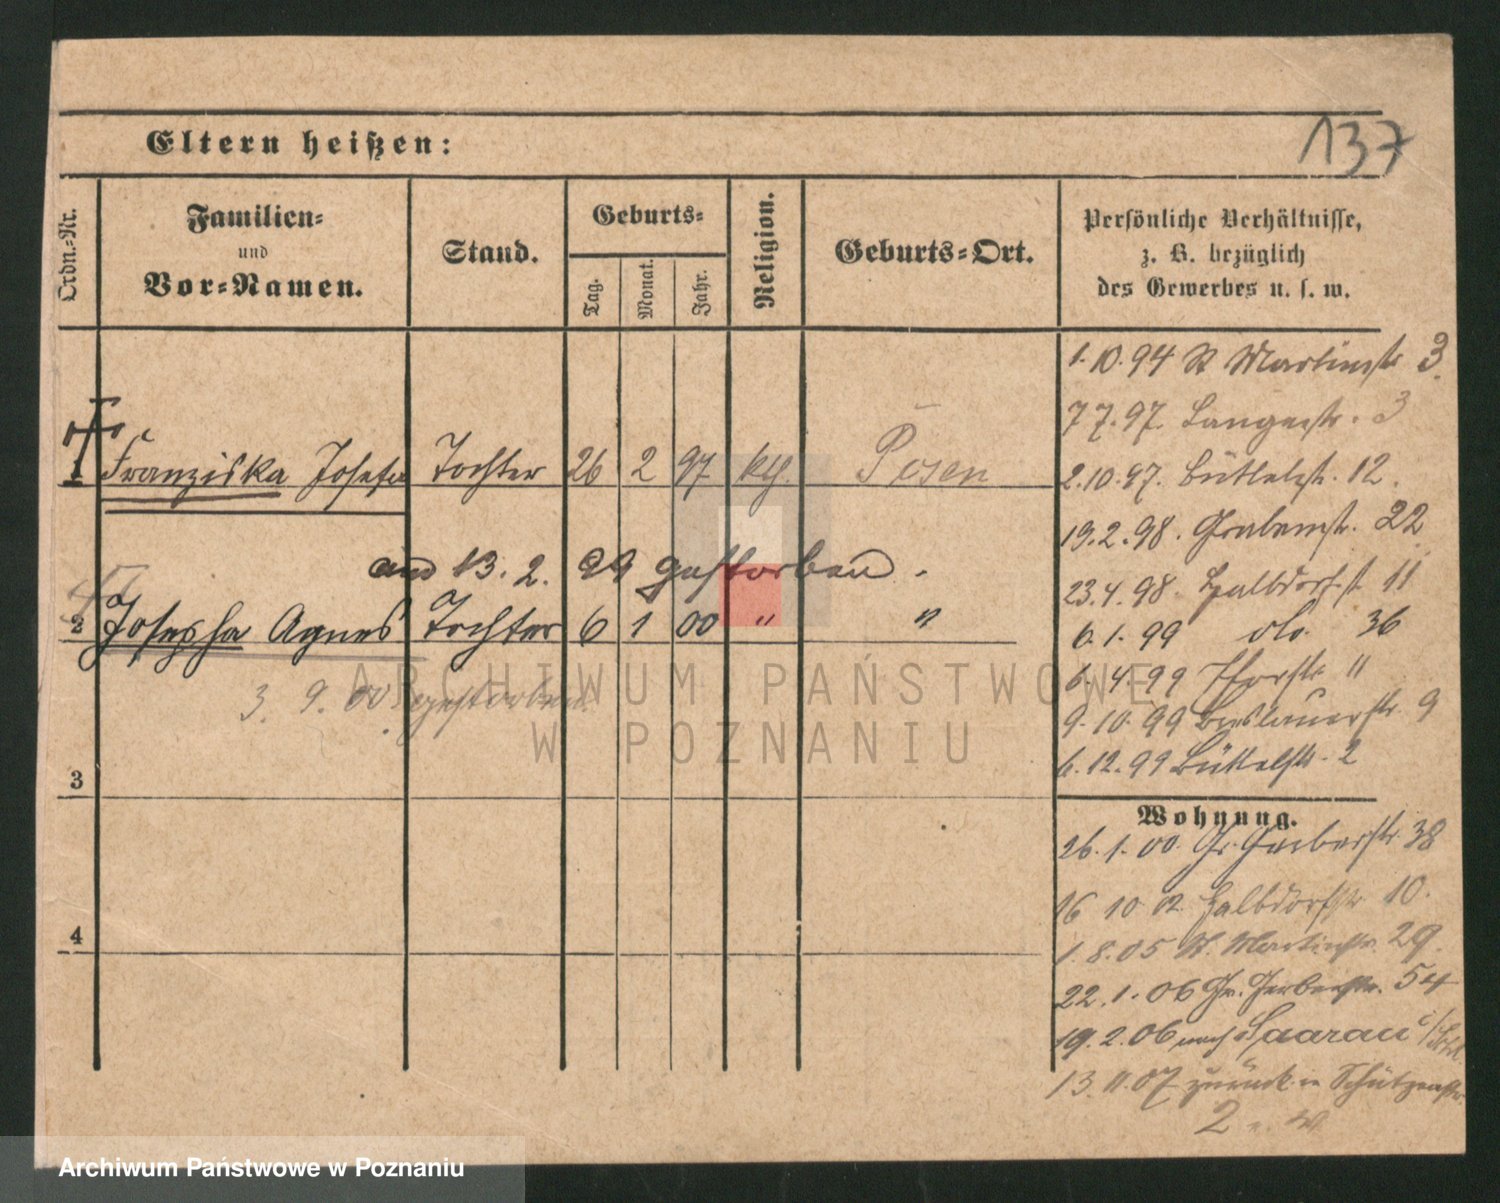 137
Eltern heißen:
Ordn.-Nr.
Familien-
und
Vor-Namen.
Stand.
Geburts-
Tag.
Monat.
Jahr.
Religion.
Geburts-Ort.
Persönliche Verhältnisse,
z. B. bezüglich
des Gewerbes u. s. w.
1 Franziska Josefa Tochter 26 2 97 kth. Posen
am 13. 2. 99 gestorben.
2 Josepha Agnes Tochter 6 1 00 " "
3. 9. 00 gestorben
3
4
1. 10. 94 St Martinstr 3.
7 7. 97. Langestr. 3
2. 10. 97. Büttelstr. 12.
19. 2. 98. Grabenstr. 22
23. 4. 98. Halbdorfst 11
6. 1. 99 do. 36
6. 4. 99 11
9. 10. 99 Breslauerstr 9
6. 12. 99 Büttelstr. 2
Wohnung.
26. 1. 00. Gr. Gerberstr 38
16 10 02 Halbdorfstr 10.
1. 8. 05 St. Martinstr. 29.
22. 1. 06 Gr. Gerberstr. 54
19. 2. 06 nach Saarau i/Schl.
13. 11. 07 zurück Schützenstr
2
ARCHIWUM PAŃSTWOWE
W POZNANIU
Archiwum Państwowe w Poznaniu